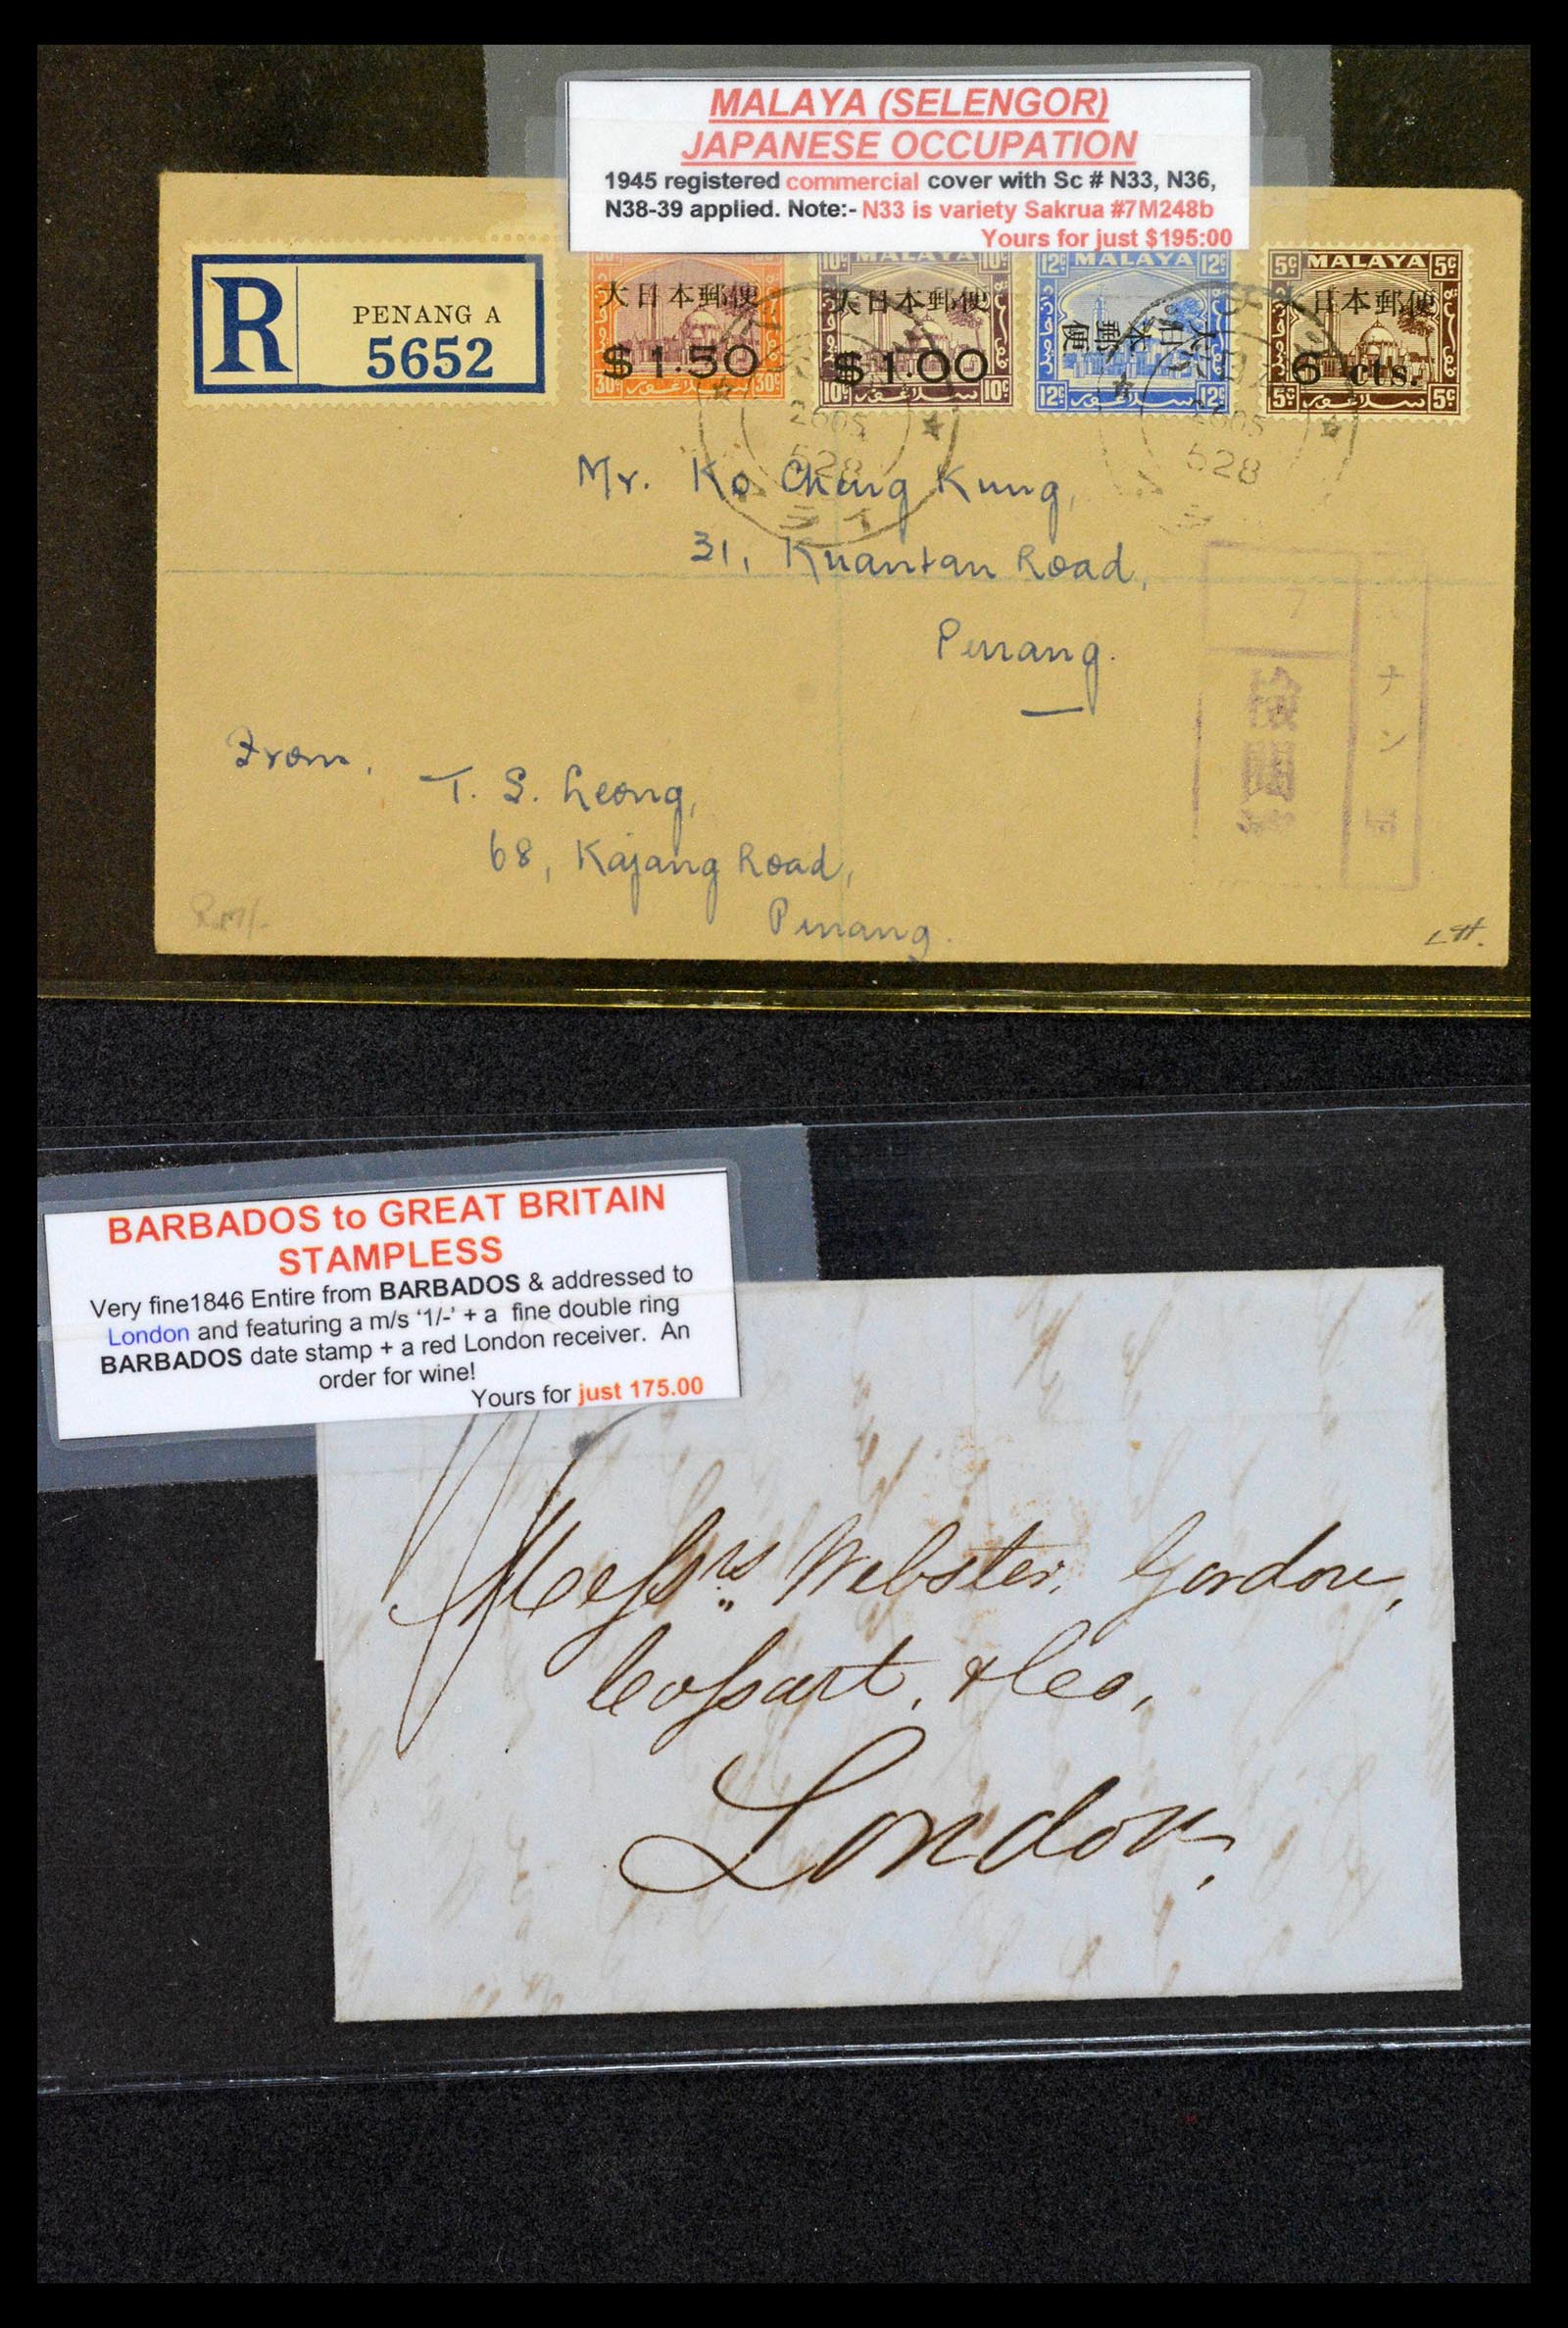 MALAYA (SELENGOR)
JAPANESE OCCUPATION
1945 registered commercial cover with Sc # N33, N36,
N38-39 applied. Note:- N33 is variety Sakrua #7M248b
Yours for just $195:00
R
PENANG A
5652
大日本郵便
$1.50
30c 30c
10c MALAYA 10c
大日本郵便
$1.00
10c 10c
12c MALAYA 12c
大日本郵便
12c 12c
5c MALAYA 5c
日本郵便
6 cts.
5c 5c
2605
528
2605
528
Mr. Ko Cheng Kung,
31, Kuantan Road,
Penang.
ナン
From,
T. S. Leong,
68, Kajang Road,
Penang.
BARBADOS to GREAT BRITAIN
STAMPLESS
Very fine1846 Entire from BARBADOS & addressed to
London and featuring a m/s ‘1/-’ + a fine double ring
BARBADOS date stamp + a red London receiver. An
order for wine!
Yours for just 175.00
Messrs Webster, Gordon,
Cossart, & Co,
London,